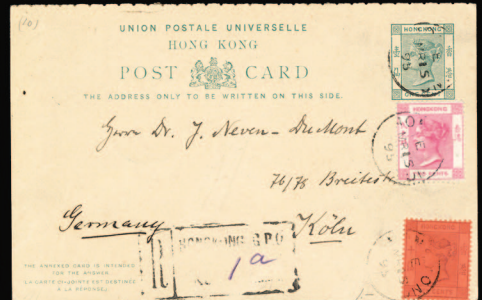 (10)
UNION POSTALE UNIVERSELLE
HONG KONG
POST CARD
THE ADDRESS ONLY TO BE WRITTEN ON THIS SIDE.
HONGKONG
HONGKONG
Herrn Dr. J. Neven-DuMont
76/78
Germany
Köln
R
HONGKONG G.P.O
1a
THE ANNEXED CARD IS INTENDED
FOR THE ANSWER.
LA CARTE CI-JOINTE EST DESTINÉE
A LA RÉPONSE.